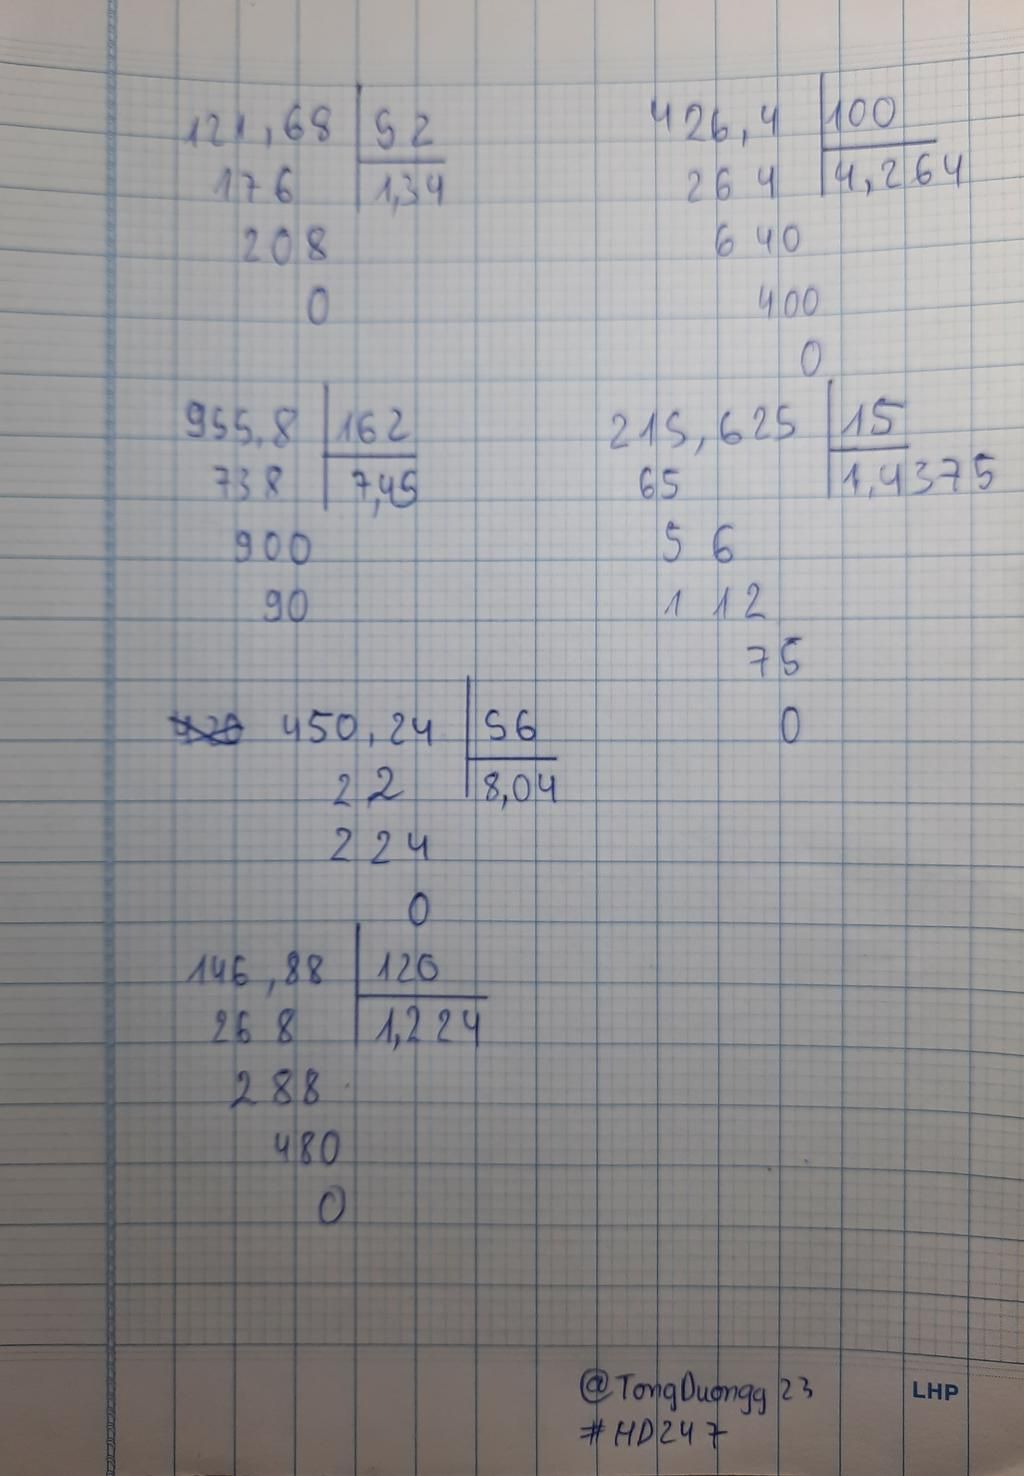 121,68 52
176 1,34
208
0
426,4 100
264 4,264
640
400
0
955,8 162
738 7,45
900
90
215,625 15
65 1,4375
5 6
1 12
75
0
450,24 56
2 2 8,04
2 2 4
0
146,88 120
268 1,224
288
480
0
@TongDuongg 23
#HD247
LHP